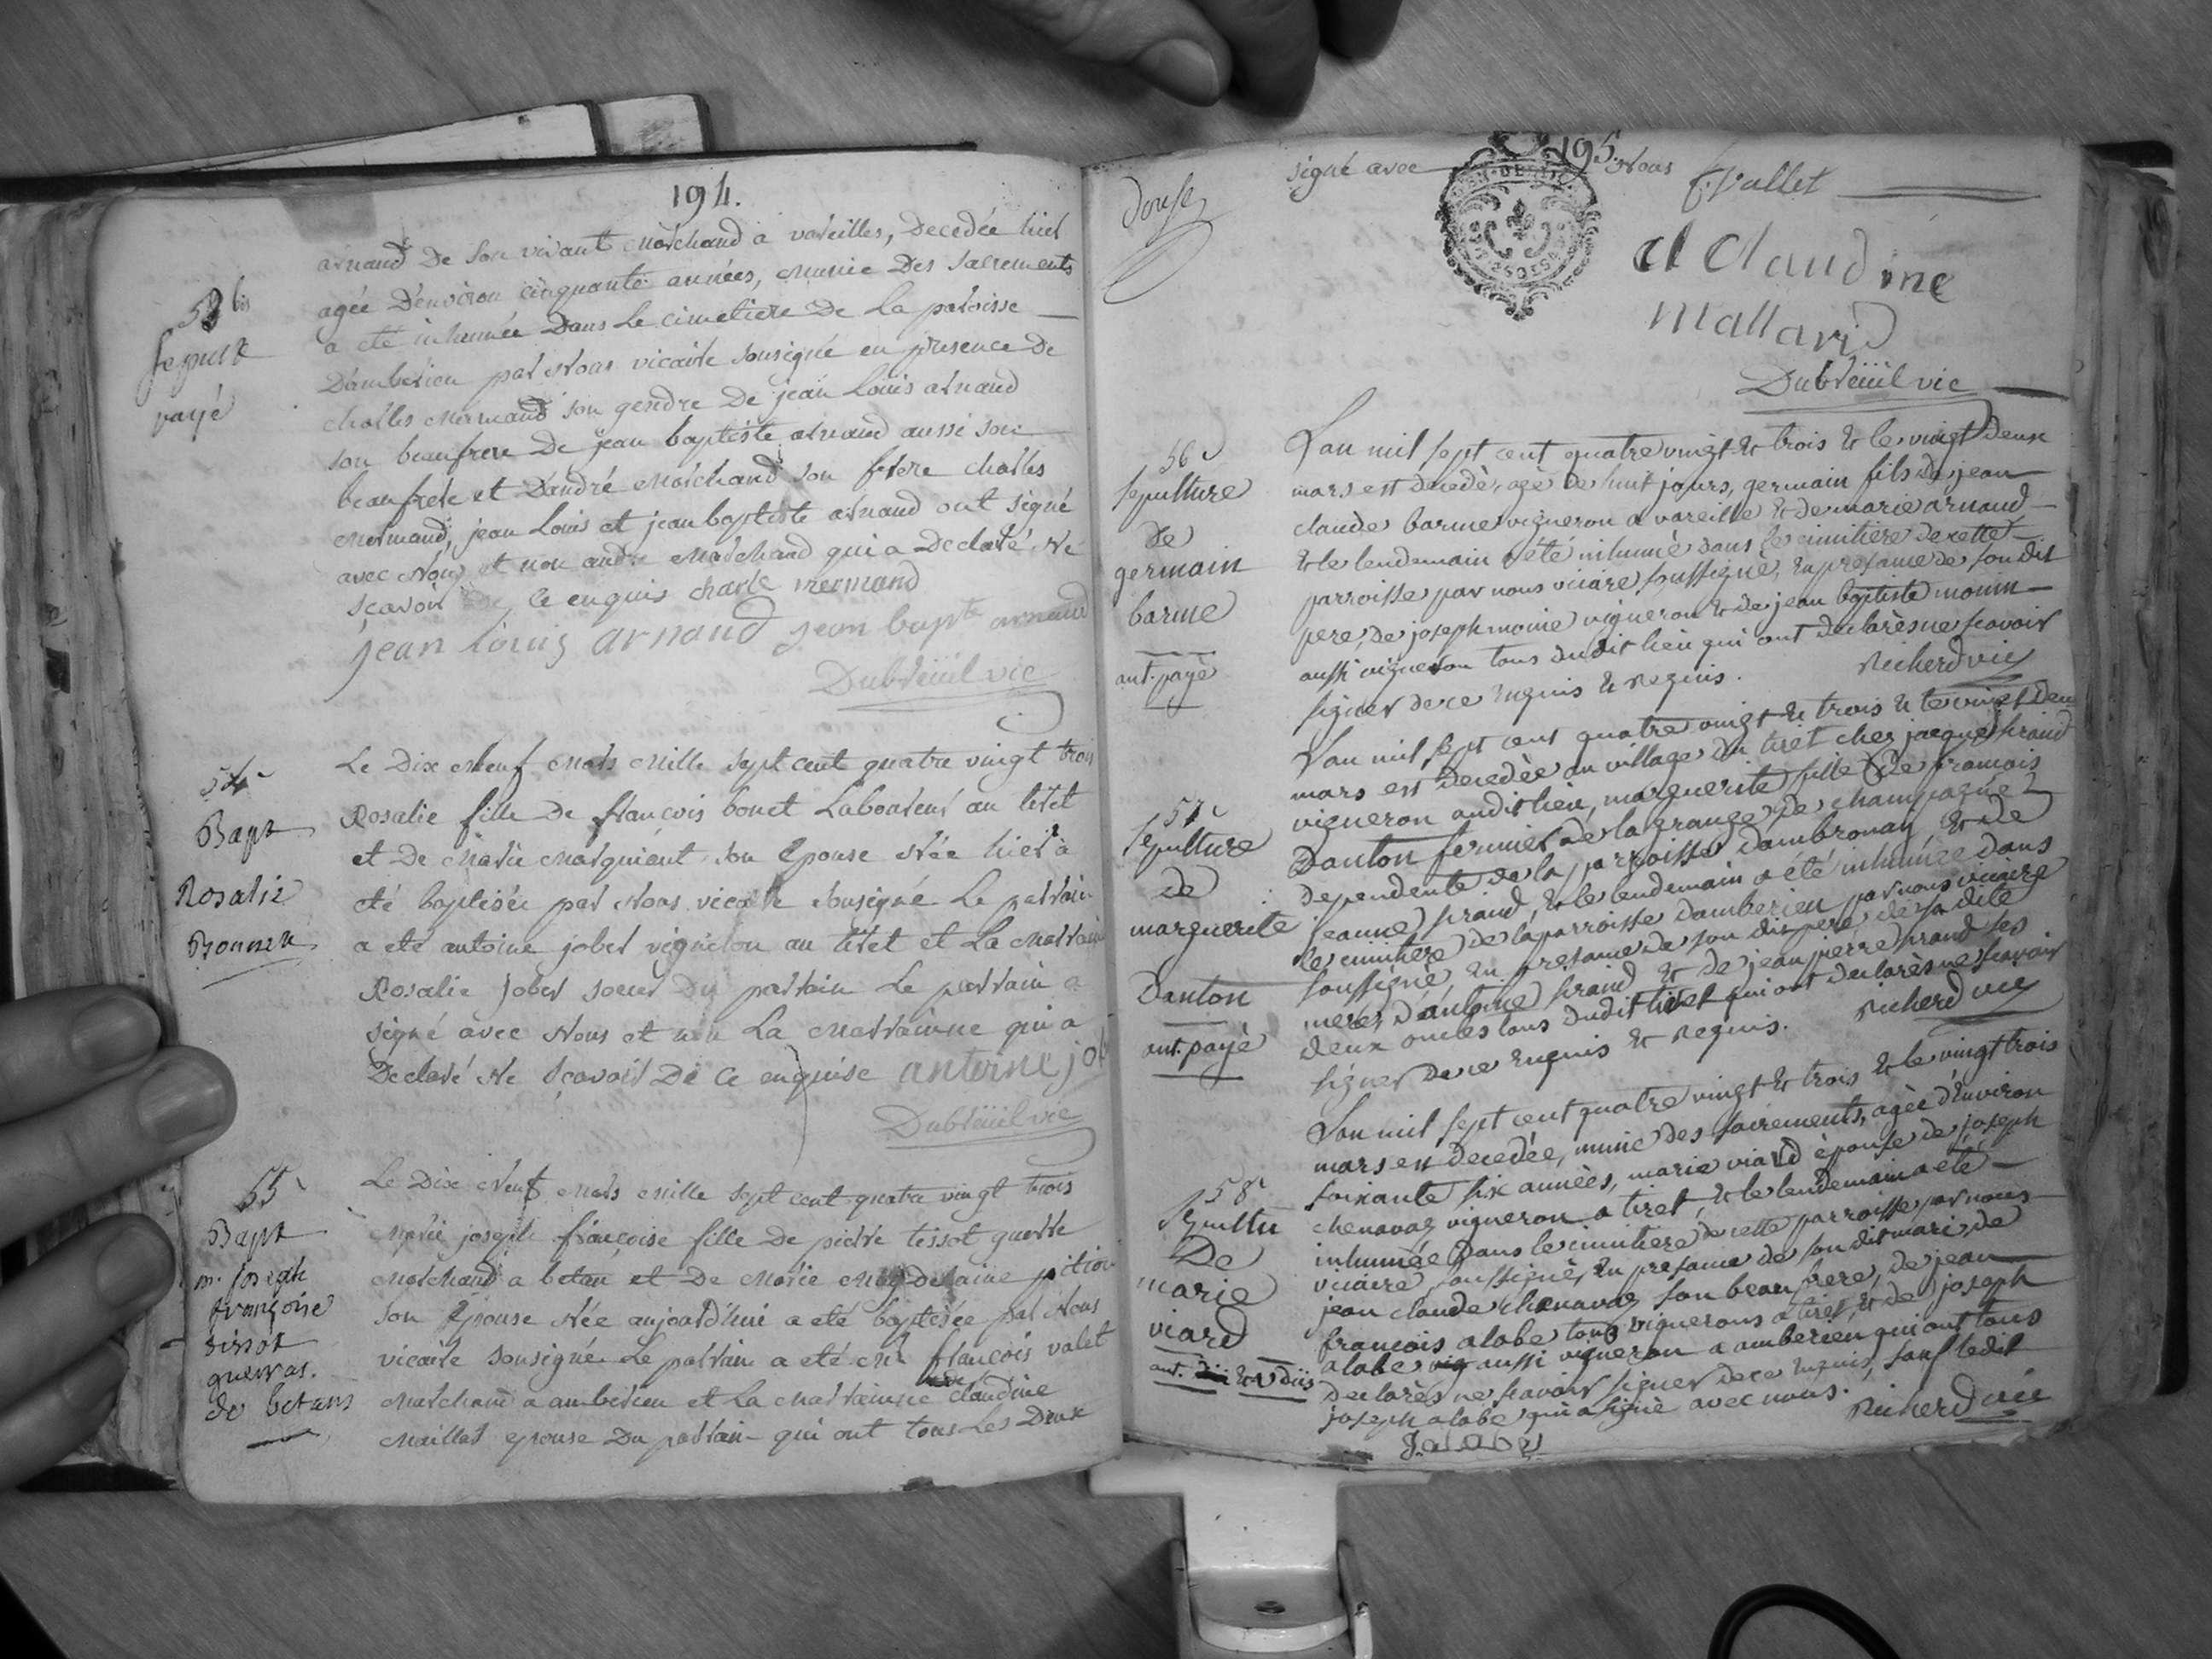 194.
arnaud De Son vivant Marchand a vareilles, Decedée hier
agée D'environ cinquante années, munie Des Sacrements
a eté inhumée Dans Le cimetiere De La paroisse
D'amberieu par Nous vicaire sousigné en presence De
charles mermand son gendre De jean Louis arnaud
son beaufrere De jean baptiste arnaud aussi son
beaufrere et D'andré Marchand son frere charles
mermand, jean Louis et jean baptiste arnaud ont signé
avec Nous et non andré Marchand qui a Declaré Ne
sçavoir De ce enquis charle mermand
jean louis arnaud jean bapte arnaud
Dubreüil vic
53 bis
Sepult
payé
54
Bapt
Rosalie
Bonnet
Le Dix Neuf Mars Mille Sept cent quatre vingt trois
Rosalie fille De françois bonet Laboureur au tiret
et De Marie Marquient son Epouse Née hier a
eté baptisée par Nous vicaire sousigné Le parrain
a eté antoine jober vigneron au tiret et La Marraine
Rosalie Jober soeur Du parrain Le parrain a
signé avec Nous et non La Marrainne qui a
Declaré Ne sçavoir De ce enquise antoine job
Dubreüil vic
55
Bapt
m. joseph
françoise
tissot
guerras.
de betans
Le Dix Neuf Mars Mille Sept cent quatre vingt trois
Marie joseph françoise fille De pierre tissot guerre
Marchand a betan et De Marie Magdelaine pition
son Epouse Née aujourd'hui a eté baptisée par Nous
vicaire sousigné Le parrain a eté Mr françois valet
Marchand a amberieu et La Marrainne claudine
Maillet epouse Du parrain qui ont tous Les Deux
195.
signé avec Nous f vallet
douse
cl claudine
mallard
Dubreüil vic
56
sepulture
de
germain
barme
ant. payé
L'an mil sept cent quatre vingt & trois & le vingt deux
mars est decedé, agé de huit jours, germain fils de jean
claude barme vigneron a vareille & de marie arnaud
& le lendemain a été inhumé dans le cimitiere de cette
parroisse par nous vicaire soussigné, en presance de son dit
pere, de joseph moine vigneron & de jean baptiste mounn
aussi vigneron tous dudit lieu qui ont declarés ne scavoir
signer de ce enquis & requis. Richerd vic
57
sepulture
de
marguerite
Danton
ant. payé
L'an mil sept cent quatre vingt & trois & le vingt deux
mars est decedée au village du tiret chez jacque sraud
vigneron audit lieu, marguerite fille de francois
Danton fermier de la grange de champagne
dependente de la parroisse d'ambronay, & de
jeanne sraud, & le lendemain a été inhumée dans
le cimitiere de la parroisse d'amberieu par nous vicaire
soussigné, en presance de son dit pere, de sa dite
mere, d'antoine sraud & de jean pierre sraud ses
deux oncles tous dudit tiret qui ont declarés ne scavoir
signer de ce enquis & requis. Richerd vic
58
Sepultu
De
marie
viard
ant.
L'an mil sept cent quatre vingt & trois & le vingt trois
mars est decedée, munie des sacrements, agée d'environ
soixante six années, marie viard épouse de joseph
chenavaz vigneron a tiret, & le lendemain a été
inhumée dans le cimitiere de cette parroisse par nous
vicaire soussigné, en presance de son dit mari, de
jean claude chenavaz son beau frere, de jean
francois alabe tous vignerons a tiret, & de joseph
alabe aussi vigneron a amberieu qui ont tous
declarés ne scavoir signer de ce enquis, sauf ledit
joseph alabe qui a signé avec nous. Richerd vic
J. alabe